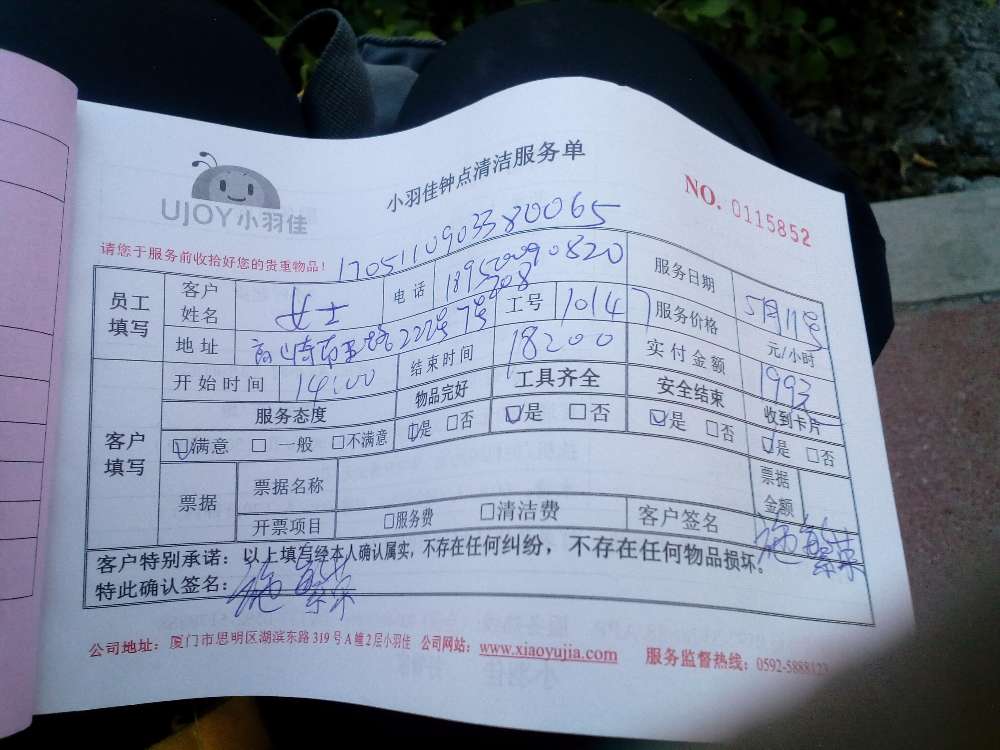 小羽佳钟点清洁服务单
NO. 0115852
UJOY小羽佳
请您于服务前收拾好您的贵重物品!
1705110903380065
员工填写 客户姓名 女士 电话 服务日期 5月11号
地址 222号7号808 工号 1014 服务价格 元/小时
开始时间 14:00 结束时间 18:00 实付金额 199
客户填写 服务态度 物品完好 工具齐全 安全结束 收到卡片
☑满意 □一般 □不满意 ☑是 □否 ☑是 □否 ☑是 □否 ☑是 □否
票据 票据名称 票据金额
开票项目 □服务费 □清洁费 客户签名
客户特别承诺:以上填写经本人确认属实,不存在任何纠纷,不存在任何物品损坏。
特此确认签名:
公司地址:厦门市思明区湖滨东路319号A幢2层小羽佳 公司网站:www.xiaoyujia.com 服务监督热线:0592-5888123